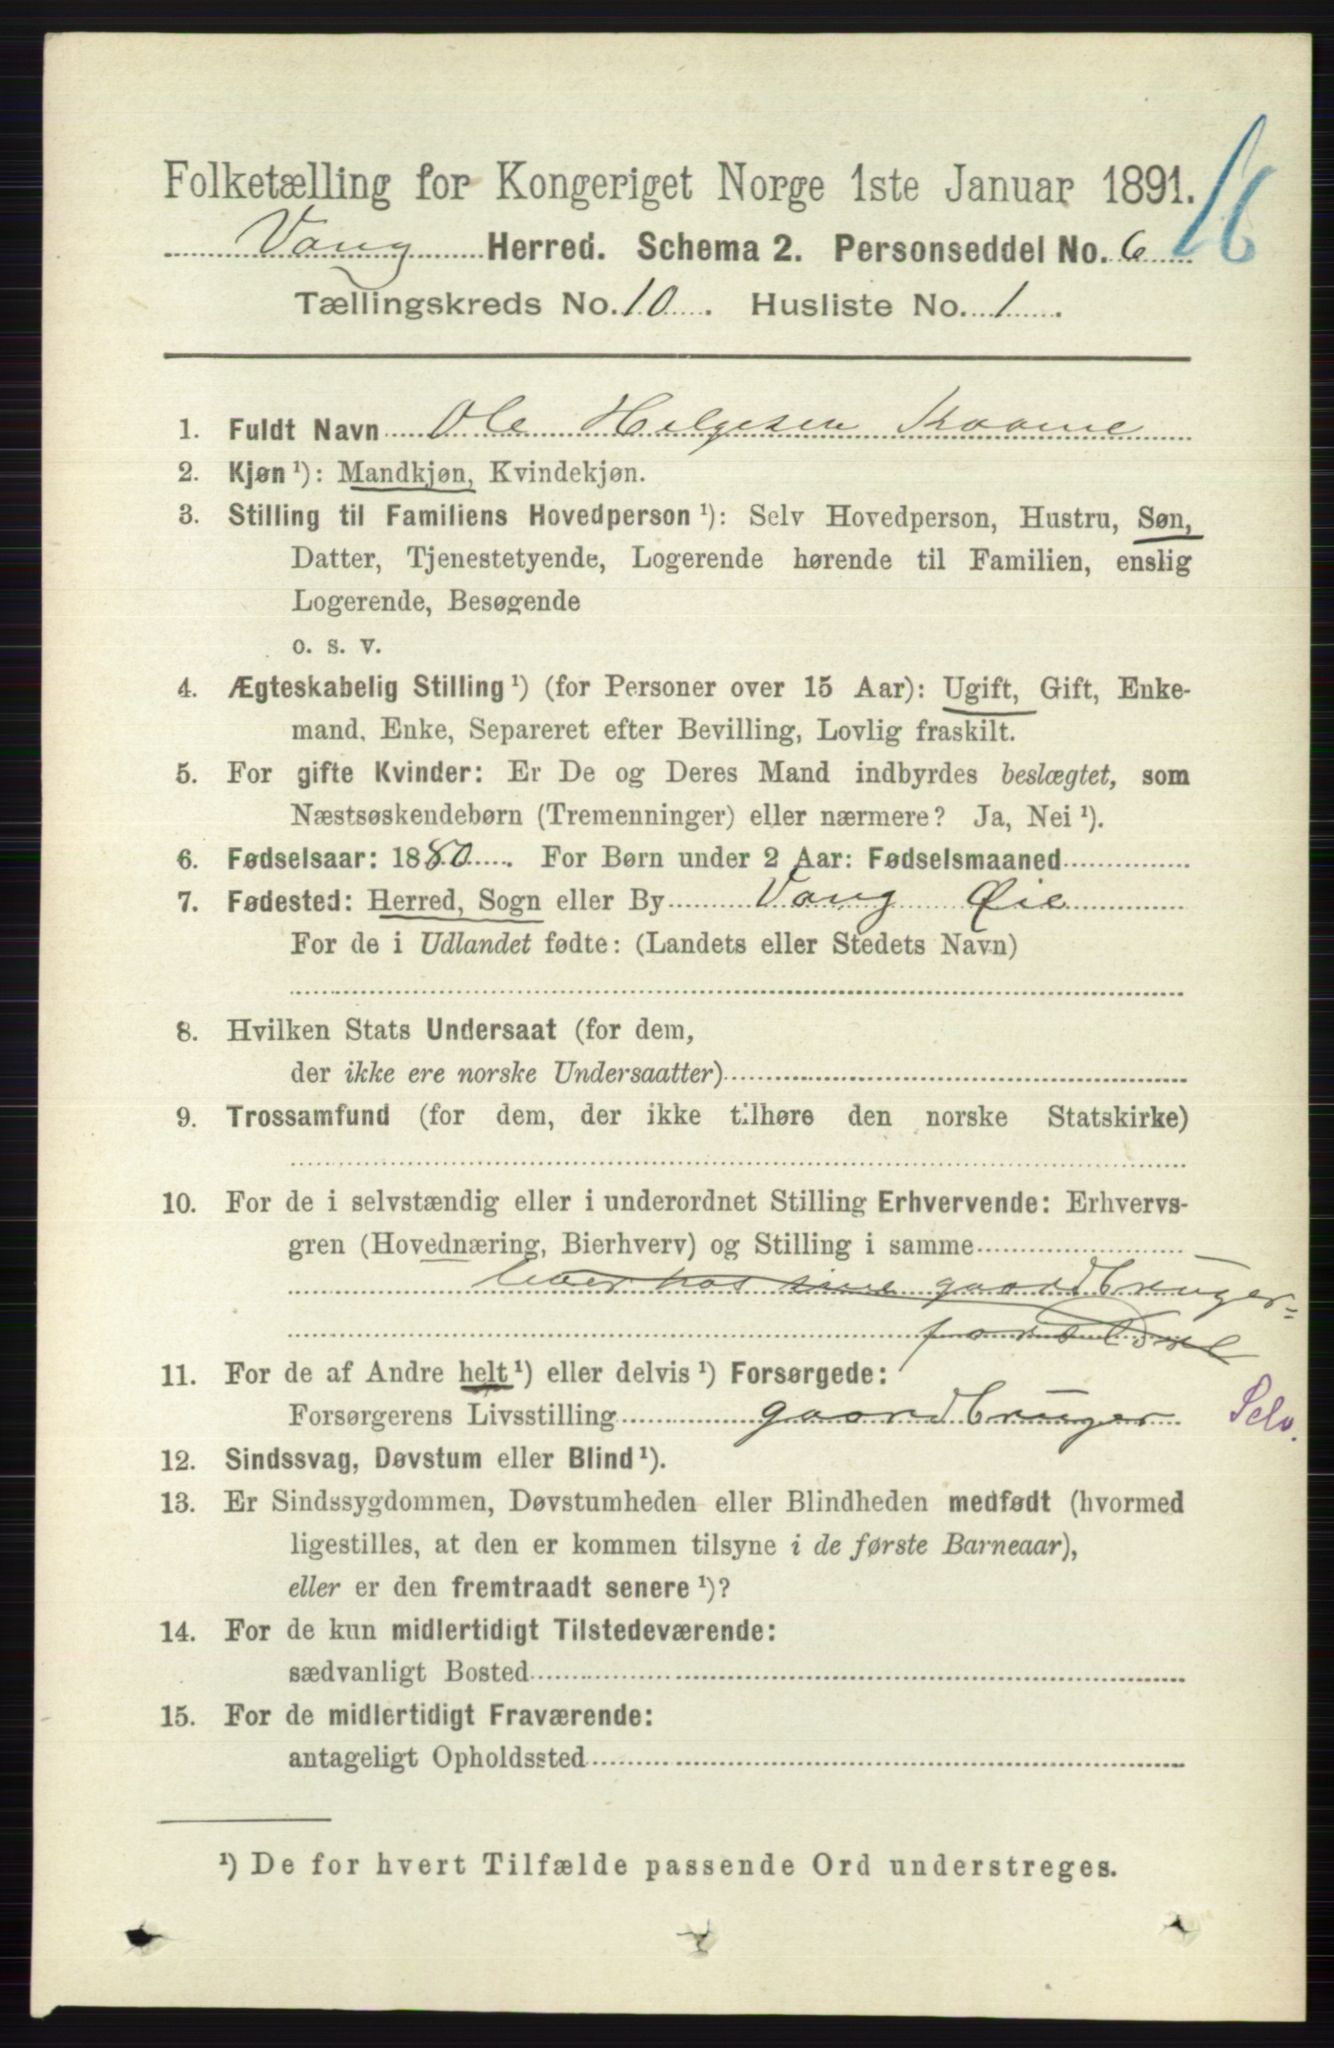 Folketælling for Kongeriget Norge 1ste Januar 1891.
Vang Herred. Schema 2. Personseddel No. 6
Tællingskreds No. 10. Husliste No. 1.
1. Fuldt Navn Ole Helgesen
2. Kjøn ¹): Mandkjøn, Kvindekjøn.
3. Stilling til Familiens Hovedperson ¹): Selv Hovedperson, Hustru, Søn,
Datter, Tjenestetyende, Logerende hørende til Familien, enslig
Logerende, Besøgende
o. s. v.
4. Ægteskabelig Stilling ¹) (for Personer over 15 Aar): Ugift, Gift, Enke-
mand, Enke, Separeret efter Bevilling, Lovlig fraskilt.
5. For gifte Kvinder: Er De og Deres Mand indbyrdes beslægtet, som
Næstsøskendebørn (Tremenninger) eller nærmere? Ja, Nei ¹).
6. Fødselsaar: 1880. For Børn under 2 Aar: Fødselsmaaned
7. Fødested: Herred, Sogn eller By Vang Øie
For de i Udlandet fødte: (Landets eller Stedets Navn)
8. Hvilken Stats Undersaat (for dem,
der ikke ere norske Undersaatter)
9. Trossamfund (for dem, der ikke tilhøre den norske Statskirke)
10. For de i selvstændig eller i underordnet Stilling Erhvervende: Erhvervs-
gren (Hovednæring, Bierhverv) og Stilling i samme
lever hos sine gaardbruger=
forældre
11. For de af Andre helt ¹) eller delvis ¹) Forsørgede:
Forsørgerens Livsstilling gaardbruger Selv.
12. Sindssvag, Døvstum eller Blind ¹).
13. Er Sindssygdommen, Døvstumheden eller Blindheden medfødt (hvormed
ligestilles, at den er kommen tilsyne i de første Barneaar),
eller er den fremtraadt senere ¹)?
14. For de kun midlertidigt Tilstedeværende:
sædvanligt Bosted
15. For de midlertidigt Fraværende:
antageligt Opholdssted
¹) De for hvert Tilfælde passende Ord understreges.